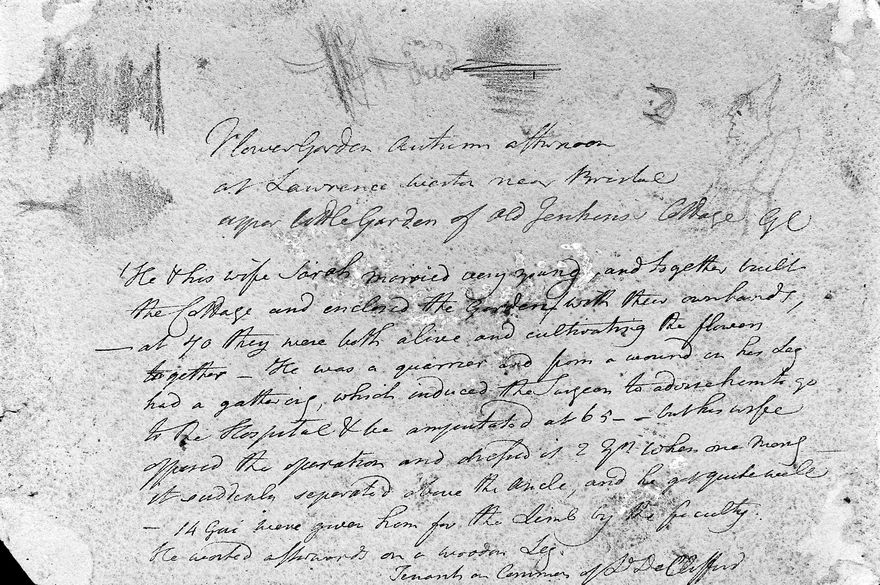 Flower Garden Autumn afternoon
at Lawrence Weston near Bristol
upper little Garden of Old Jenkins's Cottage GC
'He & his wife Sarah married very young, and together built
the Cottage and enclosed the Garden with their own hands,
— at 70 they were both alive and cultivating the flowers
together — He was a quarrier and from a wound in his Leg
had a gathering, which induced the Surgeon to advise him to go
to the Hospital & be amputated at 65 — — but his wife
opposed the operation and dressed it 2 yrs when one morng
it suddenly seperated above the Ancle, and he got quite well
— 14 Gui were given him for the Limb by the faculty.
He worked afterwards on a wooden Leg.
Tenants on Common of Ld De Clifford